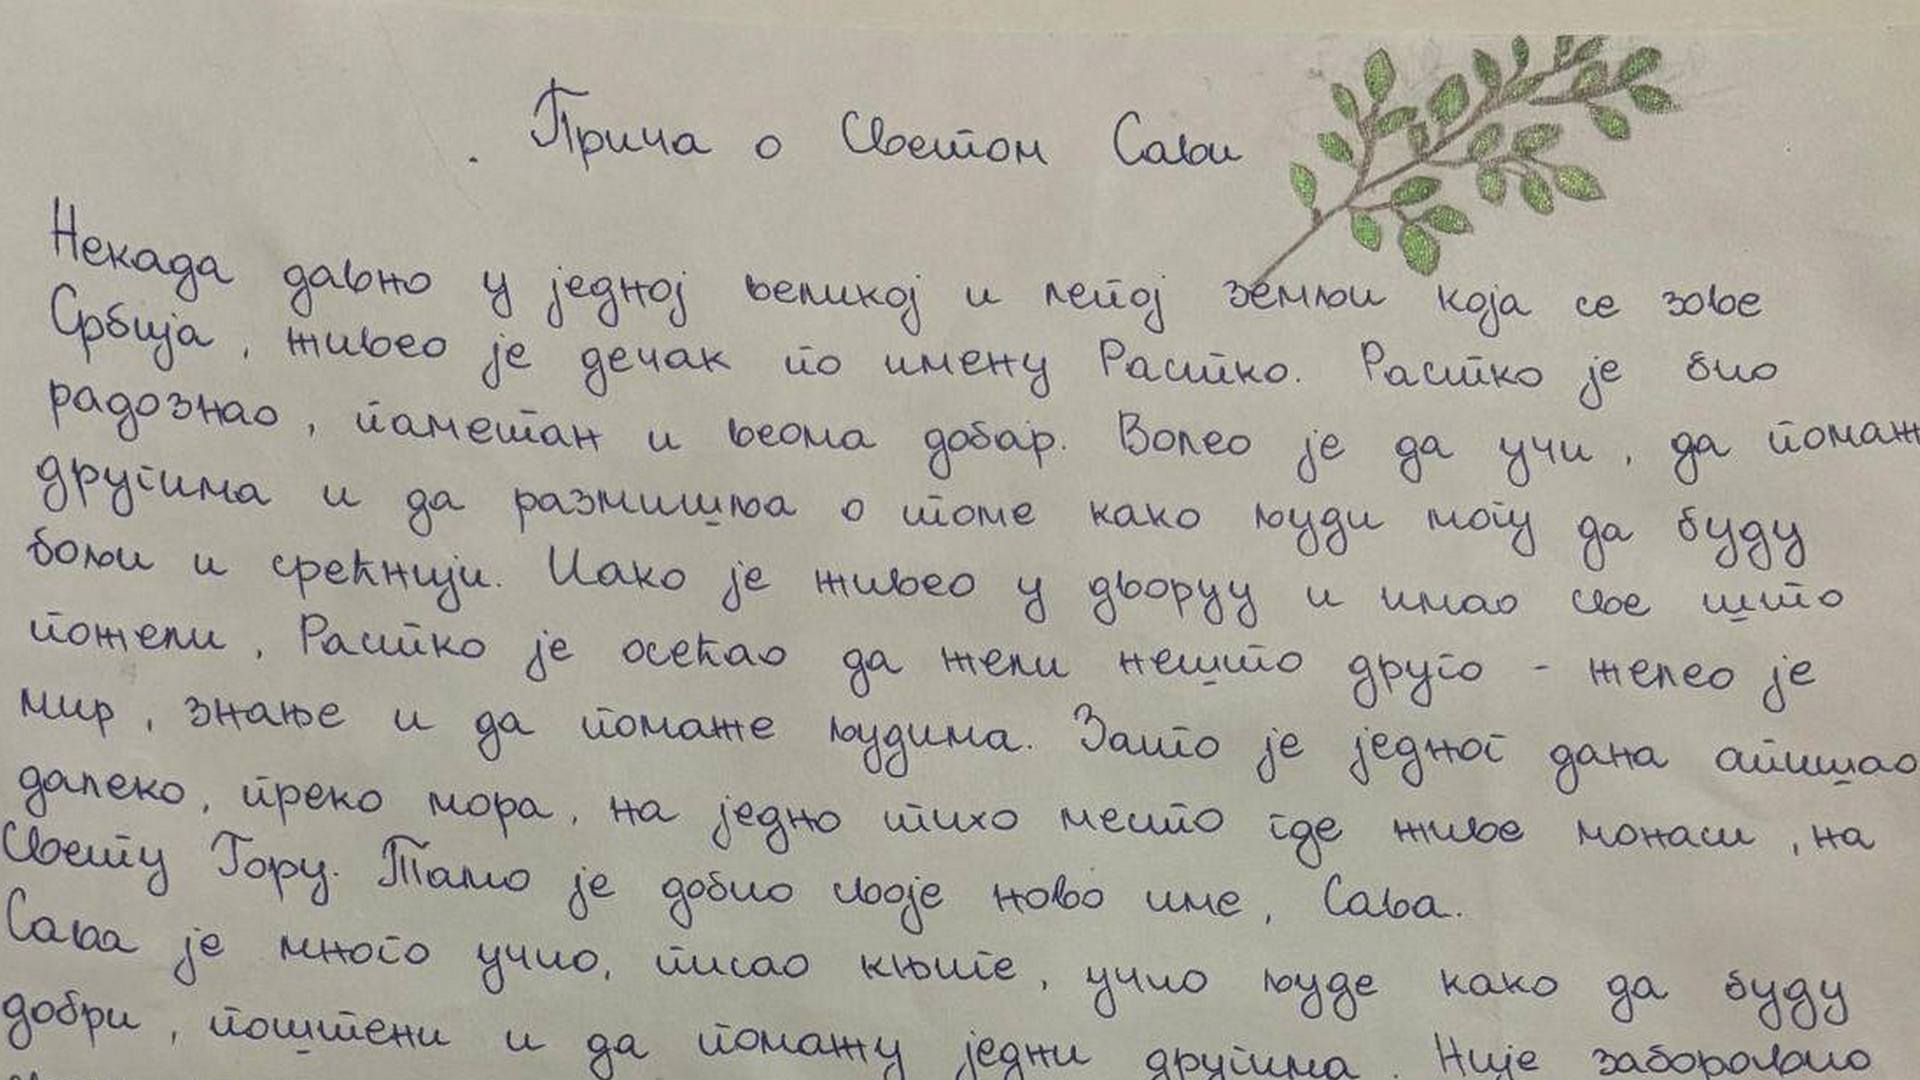 Прича о Светом Сави
Некада давно у једној великој и лепој земљи која се зове
Србија, живео је дечак по имену Растко. Растко је био
радознао, паметан и веома добар. Волео је да учи, да помаж
другима и да размишља о томе како људи могу да буду
бољи и срећнији. Иако је живео у дворцу и имао све што
пожели, Растко је осећао да жели нешто друго - желео је
мир, знање и да помаже људима. Зато је једног дана отишао
далеко, преко мора, на једно тихо место где живе монаси, на
Свету Гору. Тамо је добио своје ново име, Сава.
Сава је много учио, писао књиге, учио људе како да буду
добри, поштени и да помажу једни другима. Није заборавио